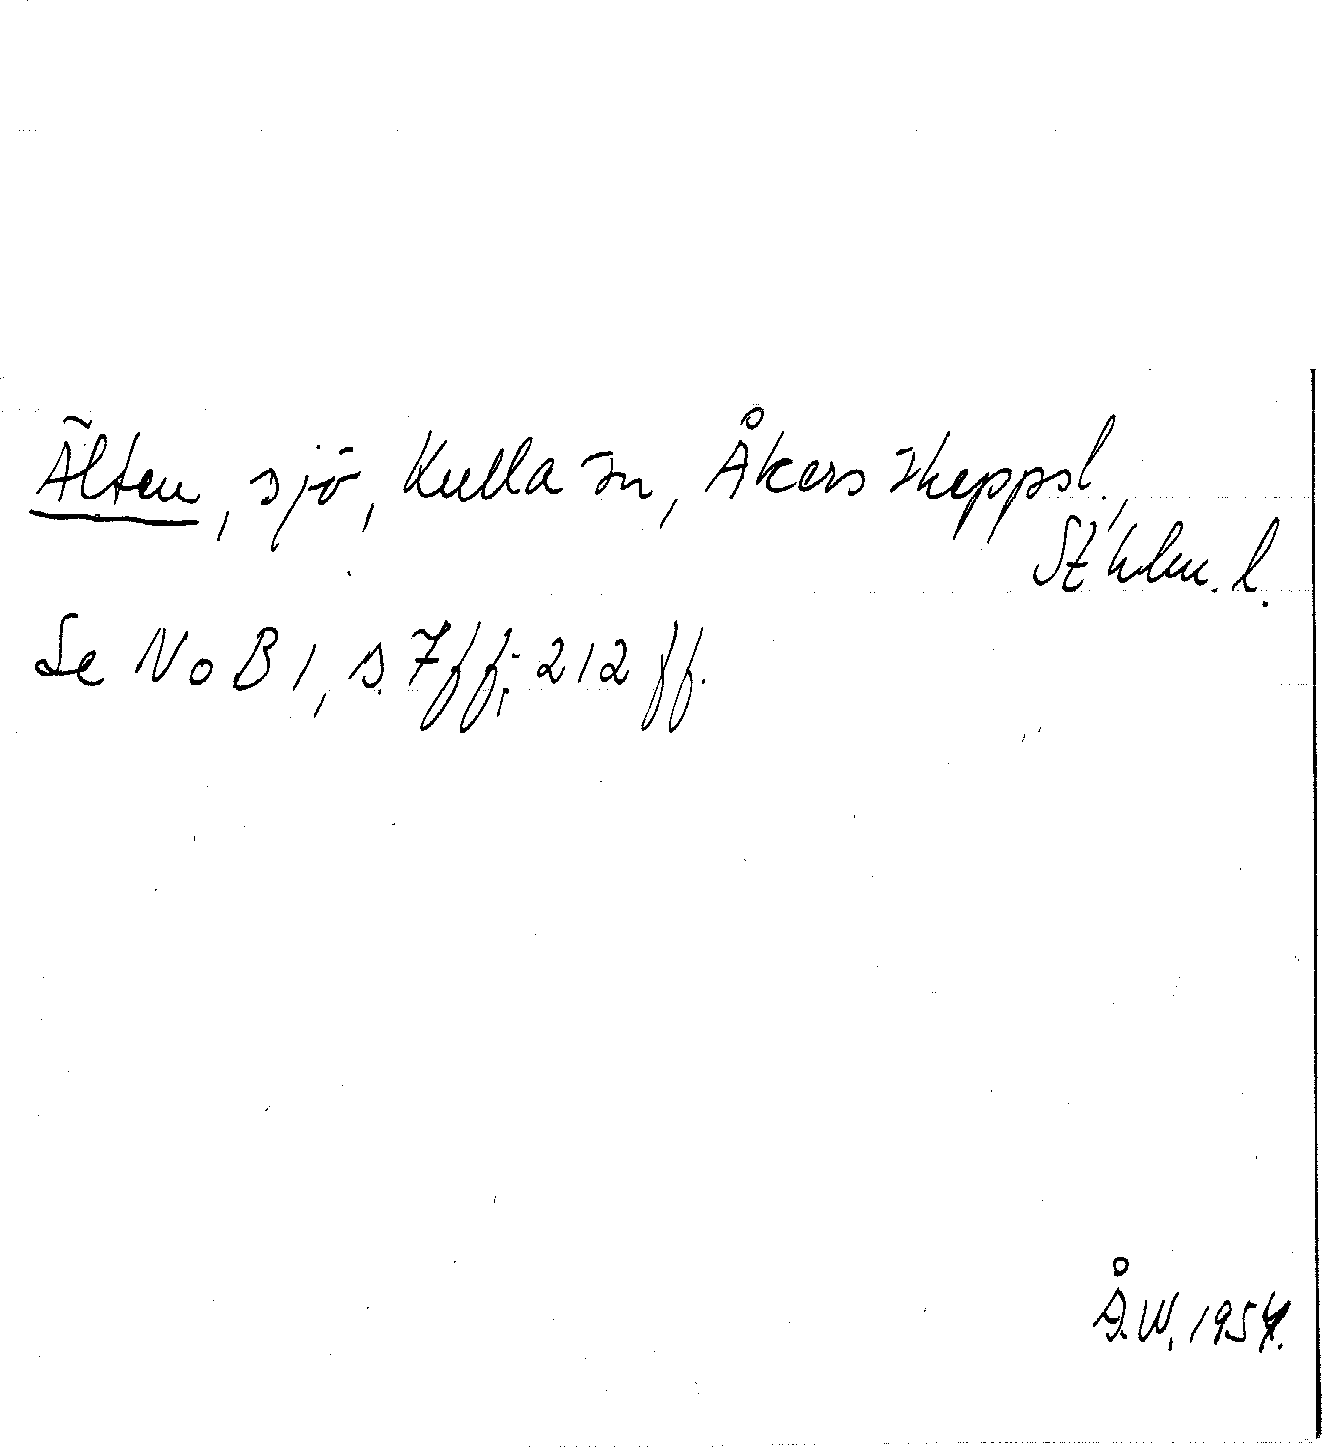 Älten, sjö, Kulla sn, Åkers skeppsl.,
Sthlm. l.
Se NoB 1, s. 7 ff; 212 ff.
Å.W. 1954.